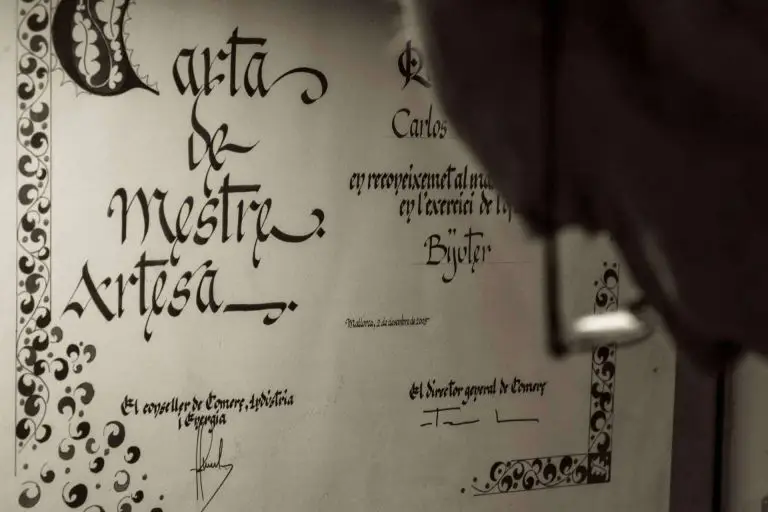 Carta
de
Mestre
Artesà
Carlos
en reconeixement al
en l'exercici de
Bijoter
Mallorca, 2 de desembre de
El conseller de Comerç, Indústria
i Energia
El director general de Comerç